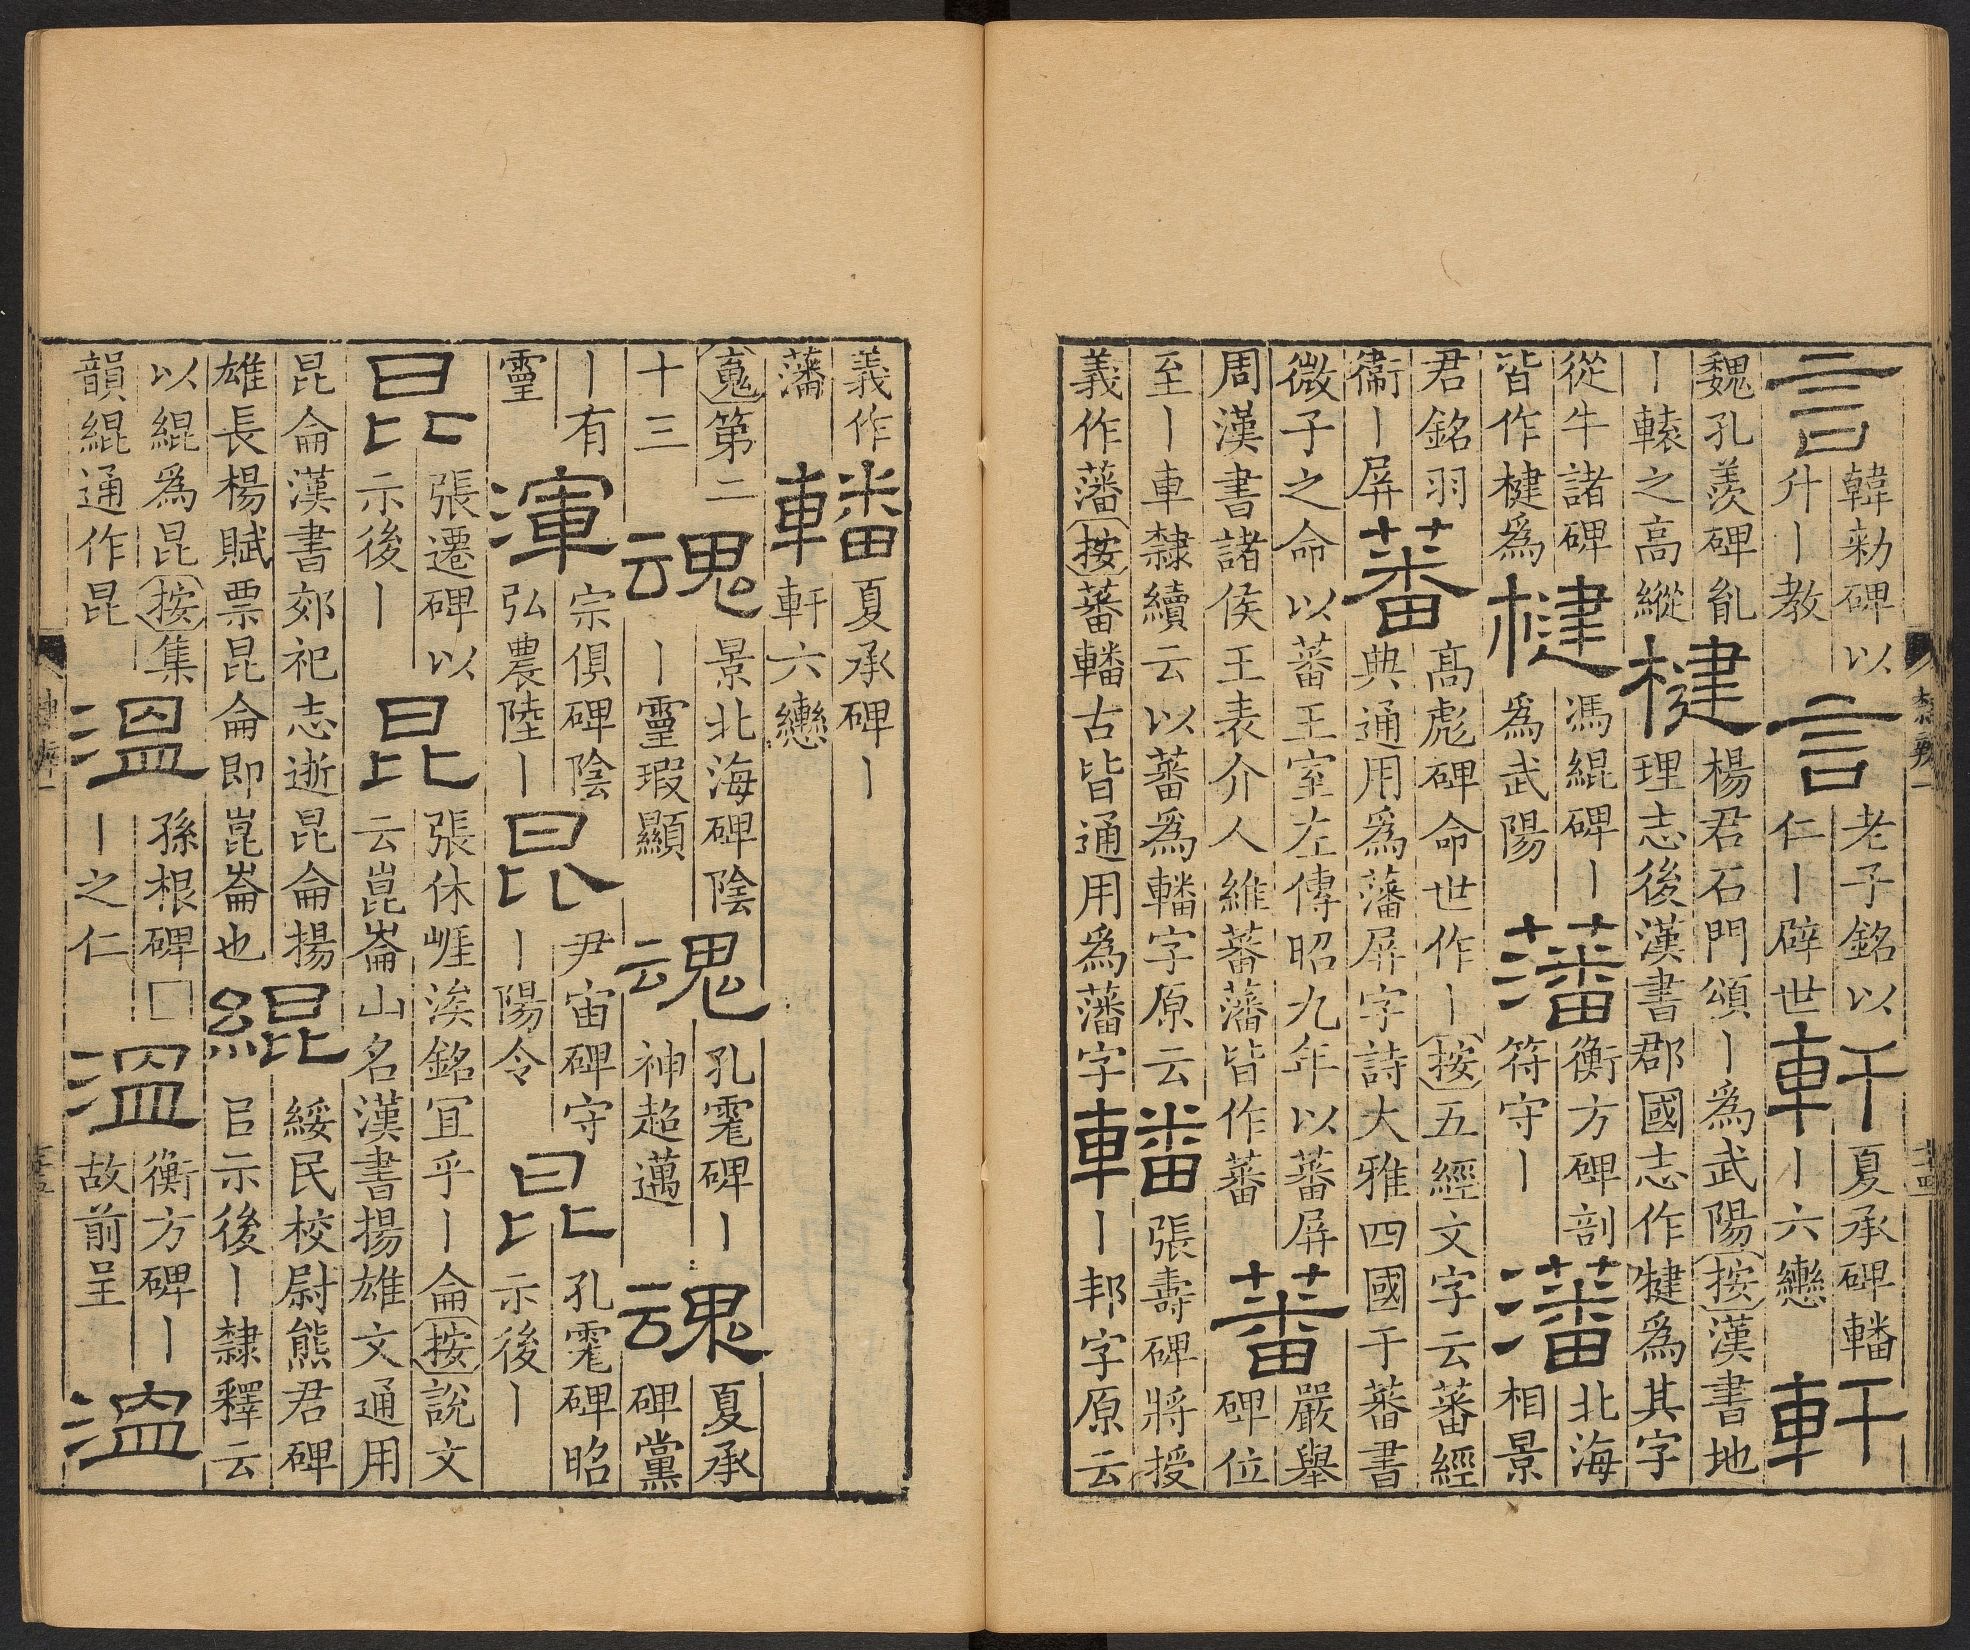 言韓勑碑以升｜教言老子銘以仁｜辟世軒夏承碑轓｜六轡軒
魏孔羨碑亂｜轅之高縱楗楊君石門頌｜為武陽按漢書地理志後漢書郡國志作犍為其字
從牛諸碑皆作楗為楗馮緄碑｜為武陽藩衡方碑剖符守｜藩北海相景
君銘羽衞｜屏蕃高彪碑命世作｜按五經文字云蕃經典通用為藩屏字詩大雅四國于蕃書
微子之命以蕃王室左傳昭九年以蕃屏周漢書諸侯王表介人維蕃藩皆作蕃蕃嚴舉碑位
至｜車隸續云以蕃為轓字原云義作藩按蕃轓古皆通用為藩字轓張壽碑將授｜邦字原云
隸辨一
義作藩轓夏承碑｜軒六轡
䰟第二十三魂景北海碑陰｜靈瑕顯魂孔碑｜神超邁魂夏承碑黨
｜有靈渾宗俱碑陰弘農陸｜昆尹宙碑守｜陽令昆孔碑昭示後｜
昆張遷碑以示後｜昆張休崕涘銘冝乎｜侖按說文云崑崙山名漢書揚雄文通用
昆侖漢書郊祀志逝昆侖揚雄長楊賦票昆侖即崑崙也緄綏民校尉熊君碑㠯示後｜隸釋云
以緄為昆按集韻緄通作昆溫孫根碑□｜之仁溫衡方碑｜故前呈溫